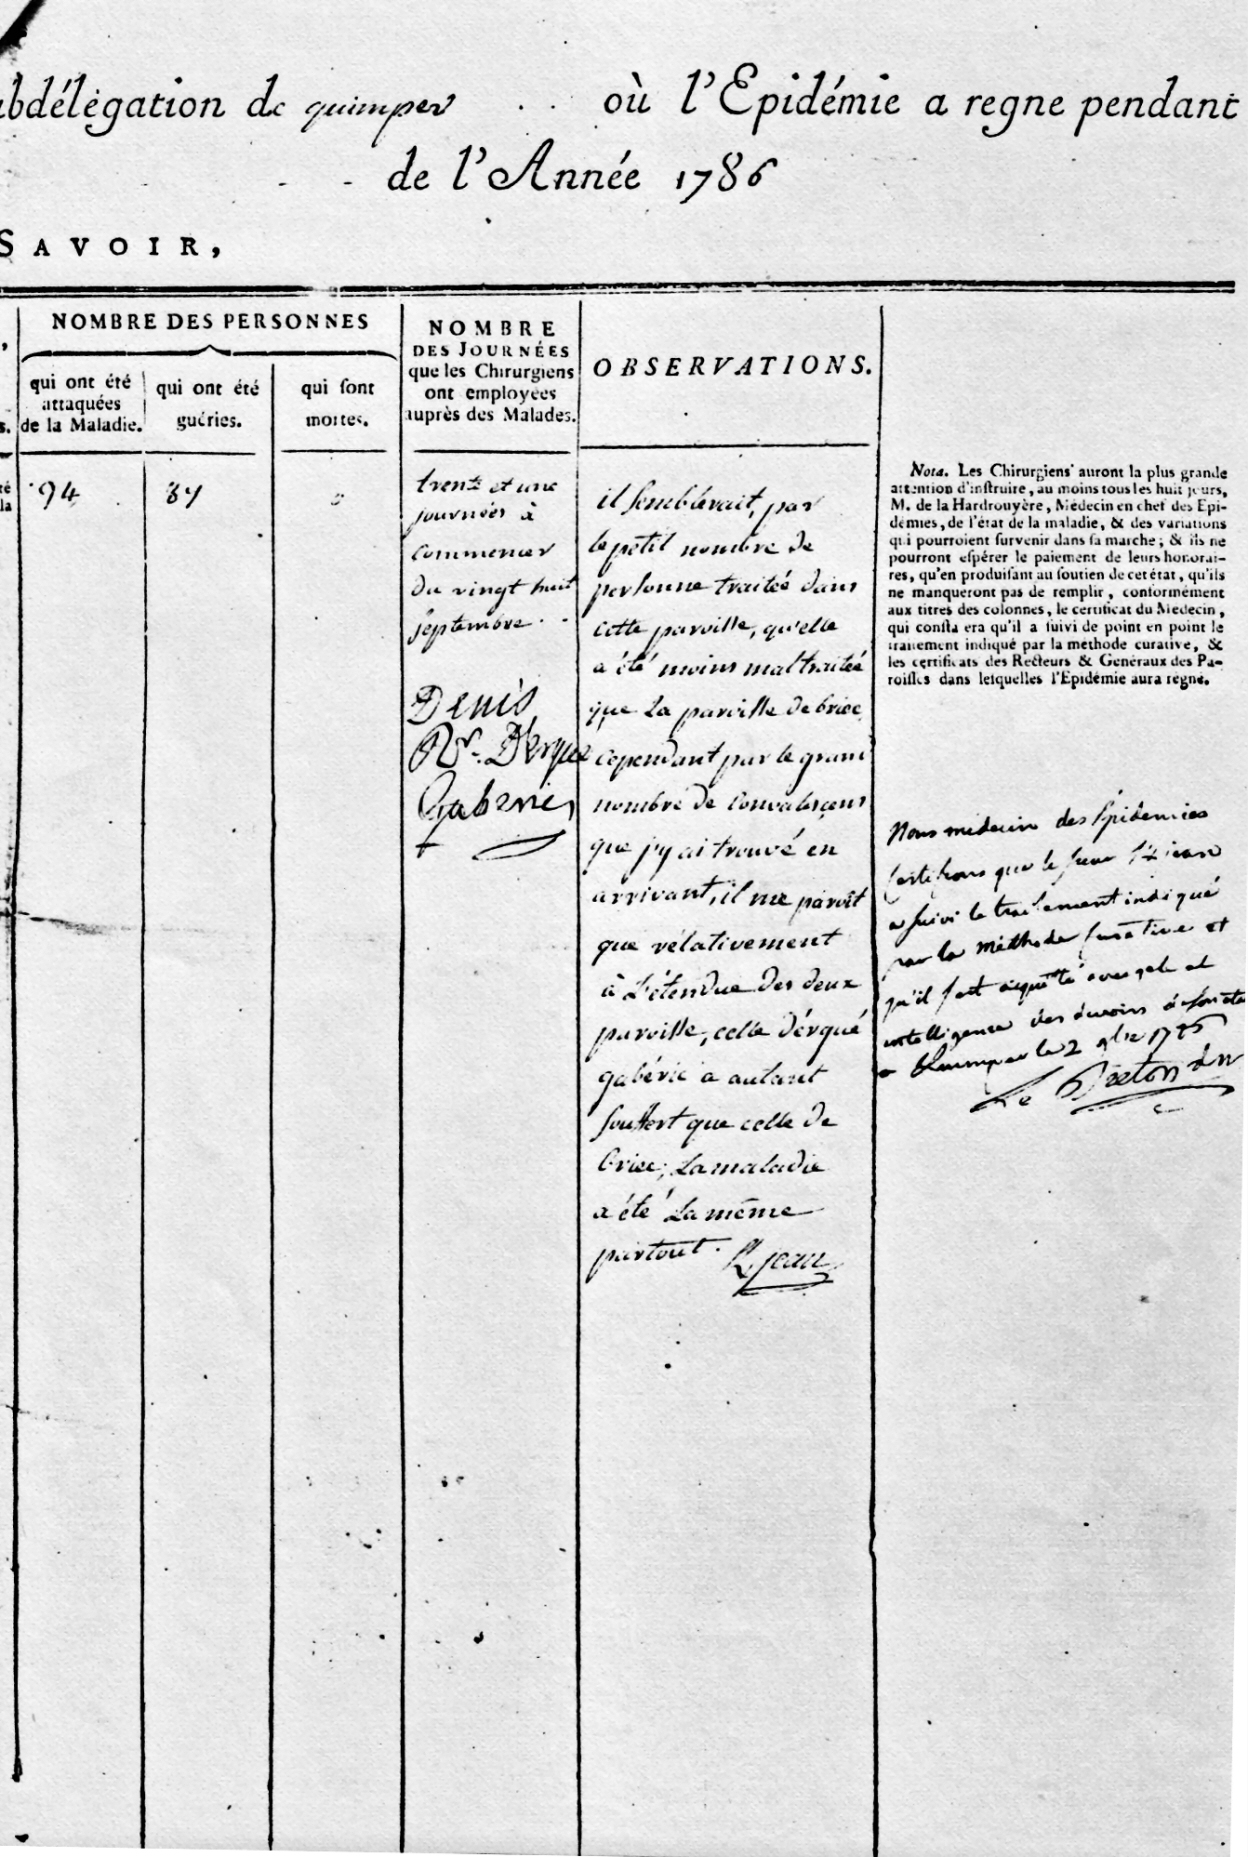 ubdélégation de quimper . . où l'Epidémie a regne pendant
- - de l'Année 1786
SAVOIR,
NOMBRE DES PERSONNES
qui ont été
attaquées
de la Maladie.
qui ont été
guéries.
qui sont
mortes.
NOMBRE
DES JOURNÉES
que les Chirurgiens
ont employées
auprès des Malades.
OBSERVATIONS.
s.
té
la
94
87
trente et une
journées à
commencer
du vingt huit
septembre . .
Denis
Rr. D'ergue
Gaberic
il semblerait, par
le petit nombre de
personne traitée dans
cette paroisse, qu'elle
a été moins maltraitée
que la paroisse de briec,
cependant par le grand
nombre de convalescens
que j'y ai trouvé en
arrivant, il me paroit
que rélativement
à l'étendue des deux
paroisse, celle d'érgué
gabéric a autant
souffert que celle de
briec; la maladie
a été la même
partout. Rjean
Nota. Les Chirurgiens auront la plus grande
attention d'instruire, au moins tous les huit jours,
M. de la Hardrouyère, Médecin en chef des Epi-
démies, de l'état de la maladie, & des variations
qui pourroient survenir dans sa marche; & ils ne
pourront espérer le paiement de leurs honorai-
res, qu'en produisant au soutien de cet état, qu'ils
ne manqueront pas de remplir, conformément
aux titres des colonnes, le certificat du Médecin,
qui consta era qu'il a suivi de point en point le
traitement indiqué par la méthode curative, &
les certificats des Recteurs & Généraux des Pa-
roisses dans lesquelles l'Epidémie aura régné.
Nous médecin des Epidemies
certifions que le sieur
a suivi le traitement indiqué
par la méthode curative et
qu'il s'est aquitté avec zele et
intelligence des devoirs
a Quimper le 2 9bre 1786
Le Breton